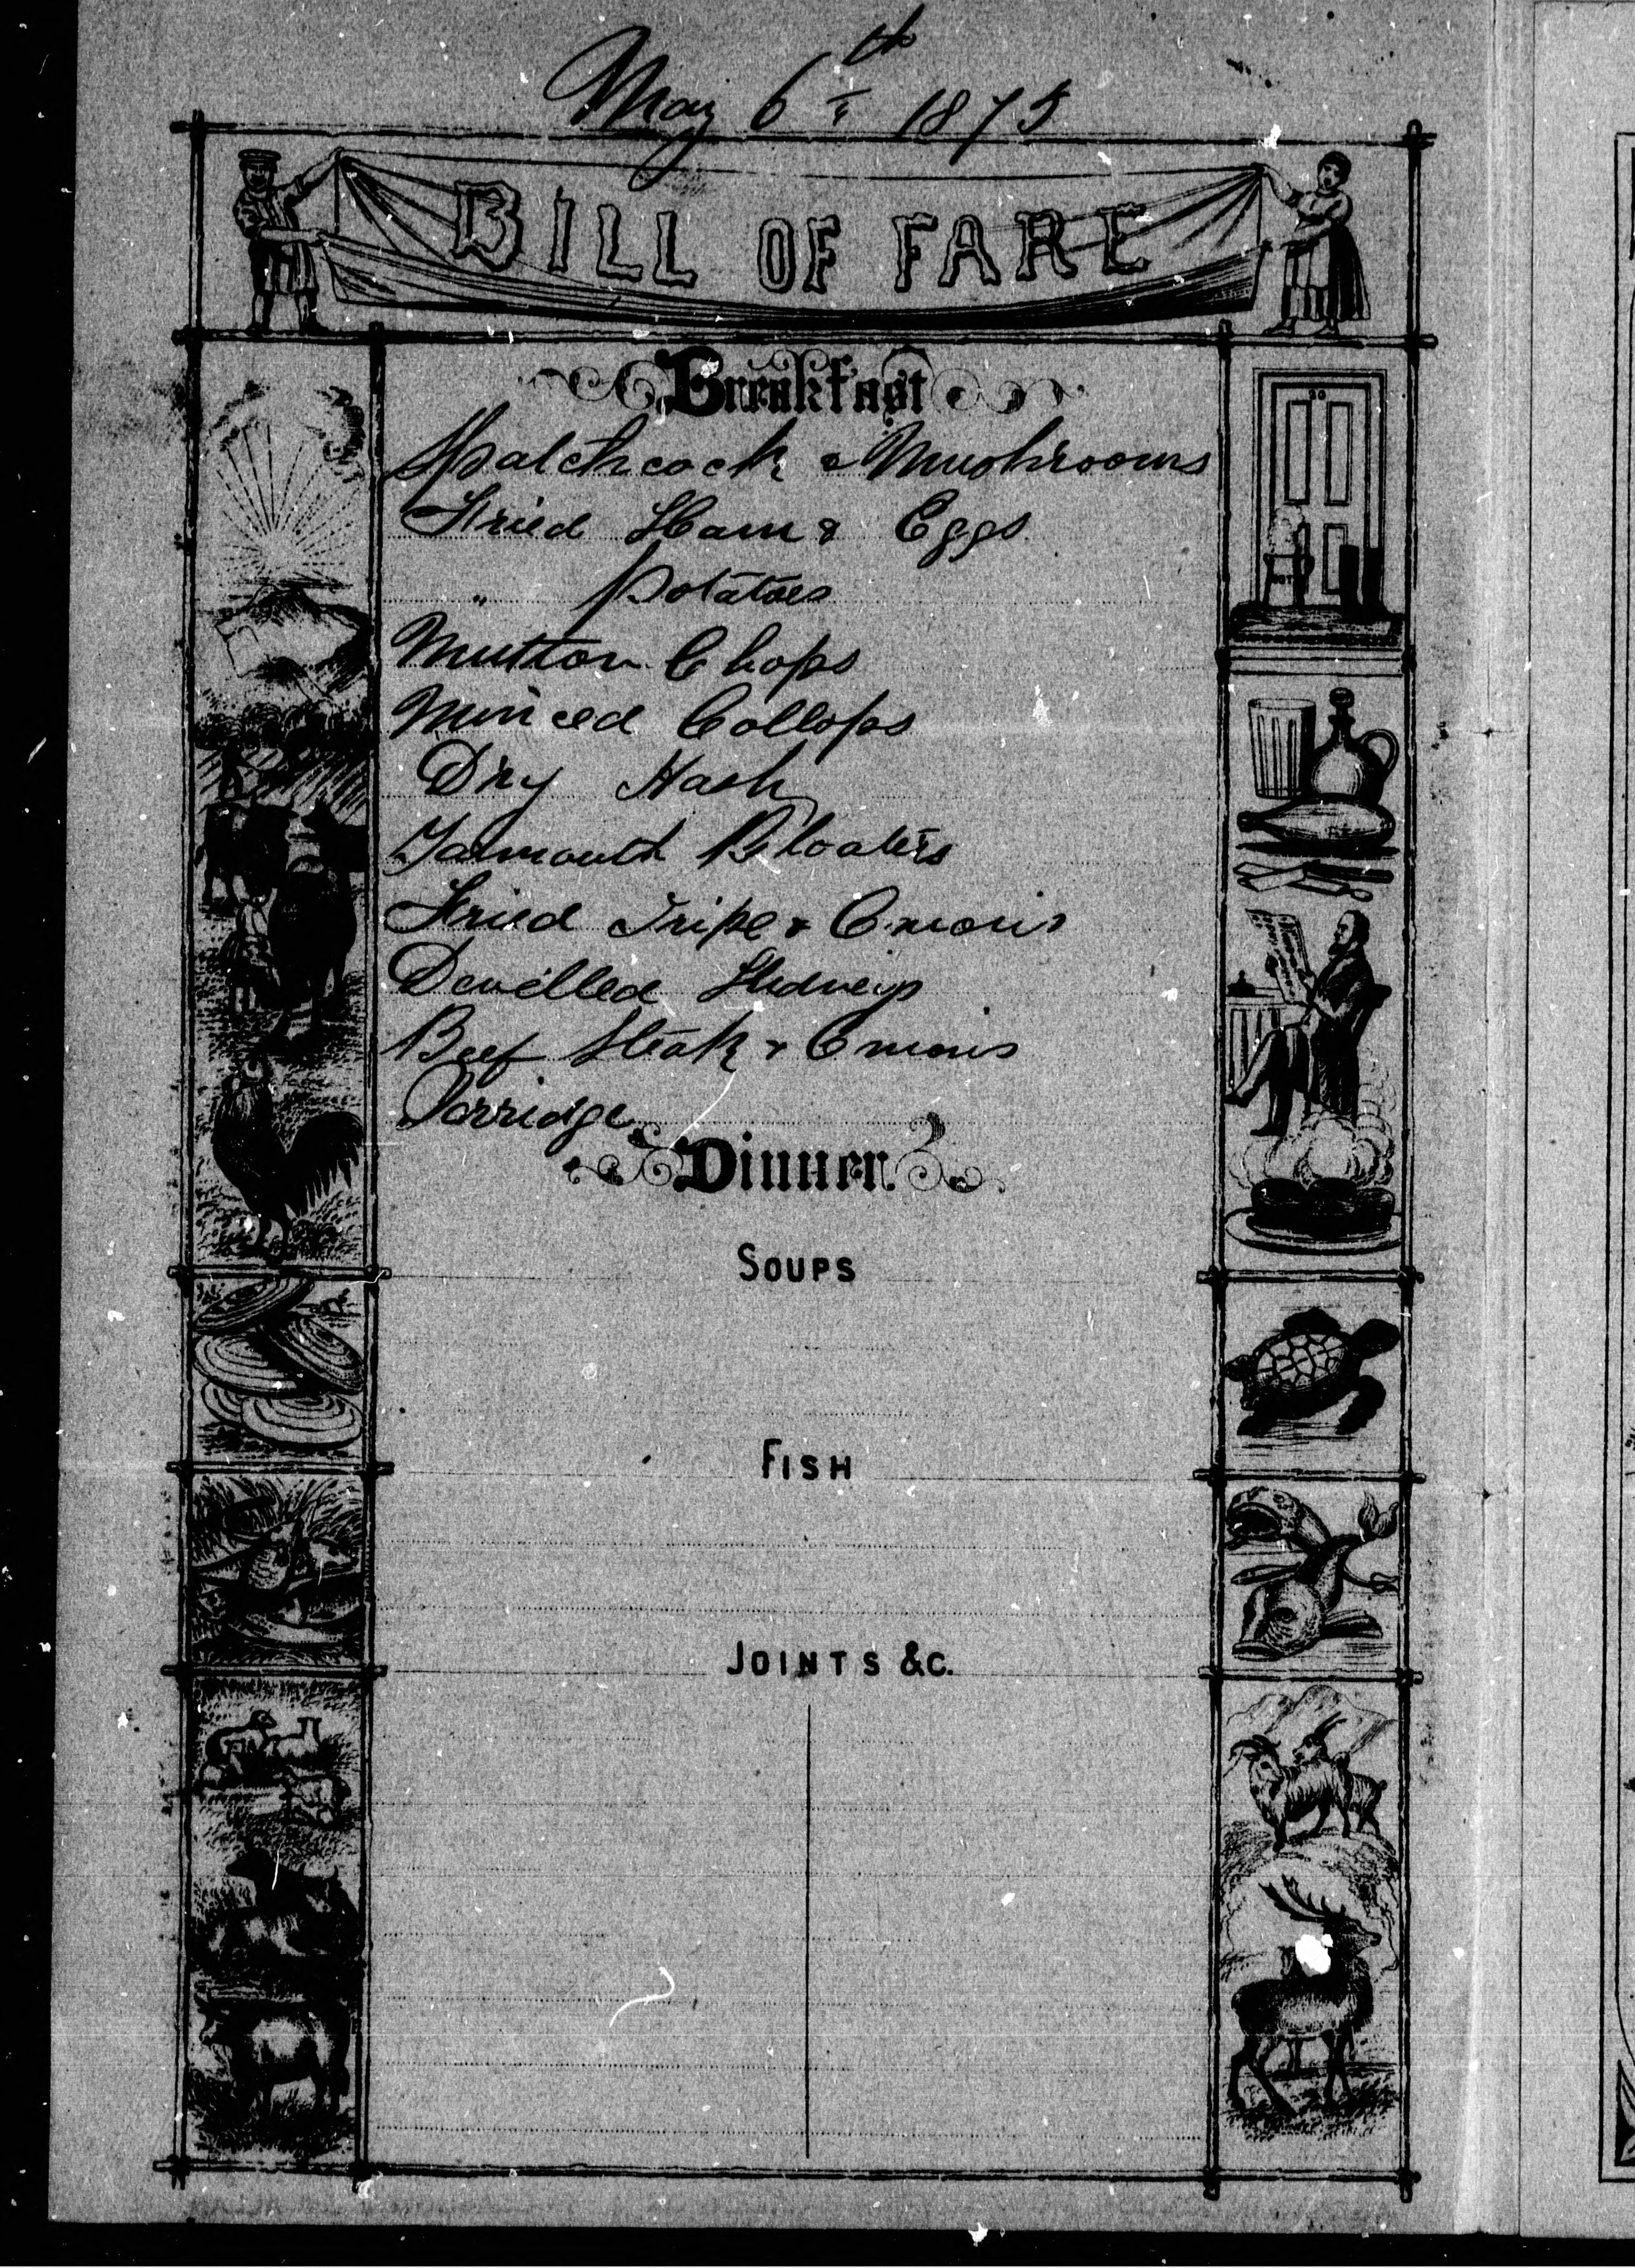 May 6th 1875
BILL OF FARE
Breakfast
Spatchcock & Mushrooms
Fried Ham & Eggs
" potatoes
Mutton Chops
Minced Collops
Dry Hash
Yarmouth Bloaters
Fried Tripe & Onions
Devilled Kidneys
Beef Steak & Onions
Porridge
Dinner.
SOUPS
FISH
JOINTS &C.